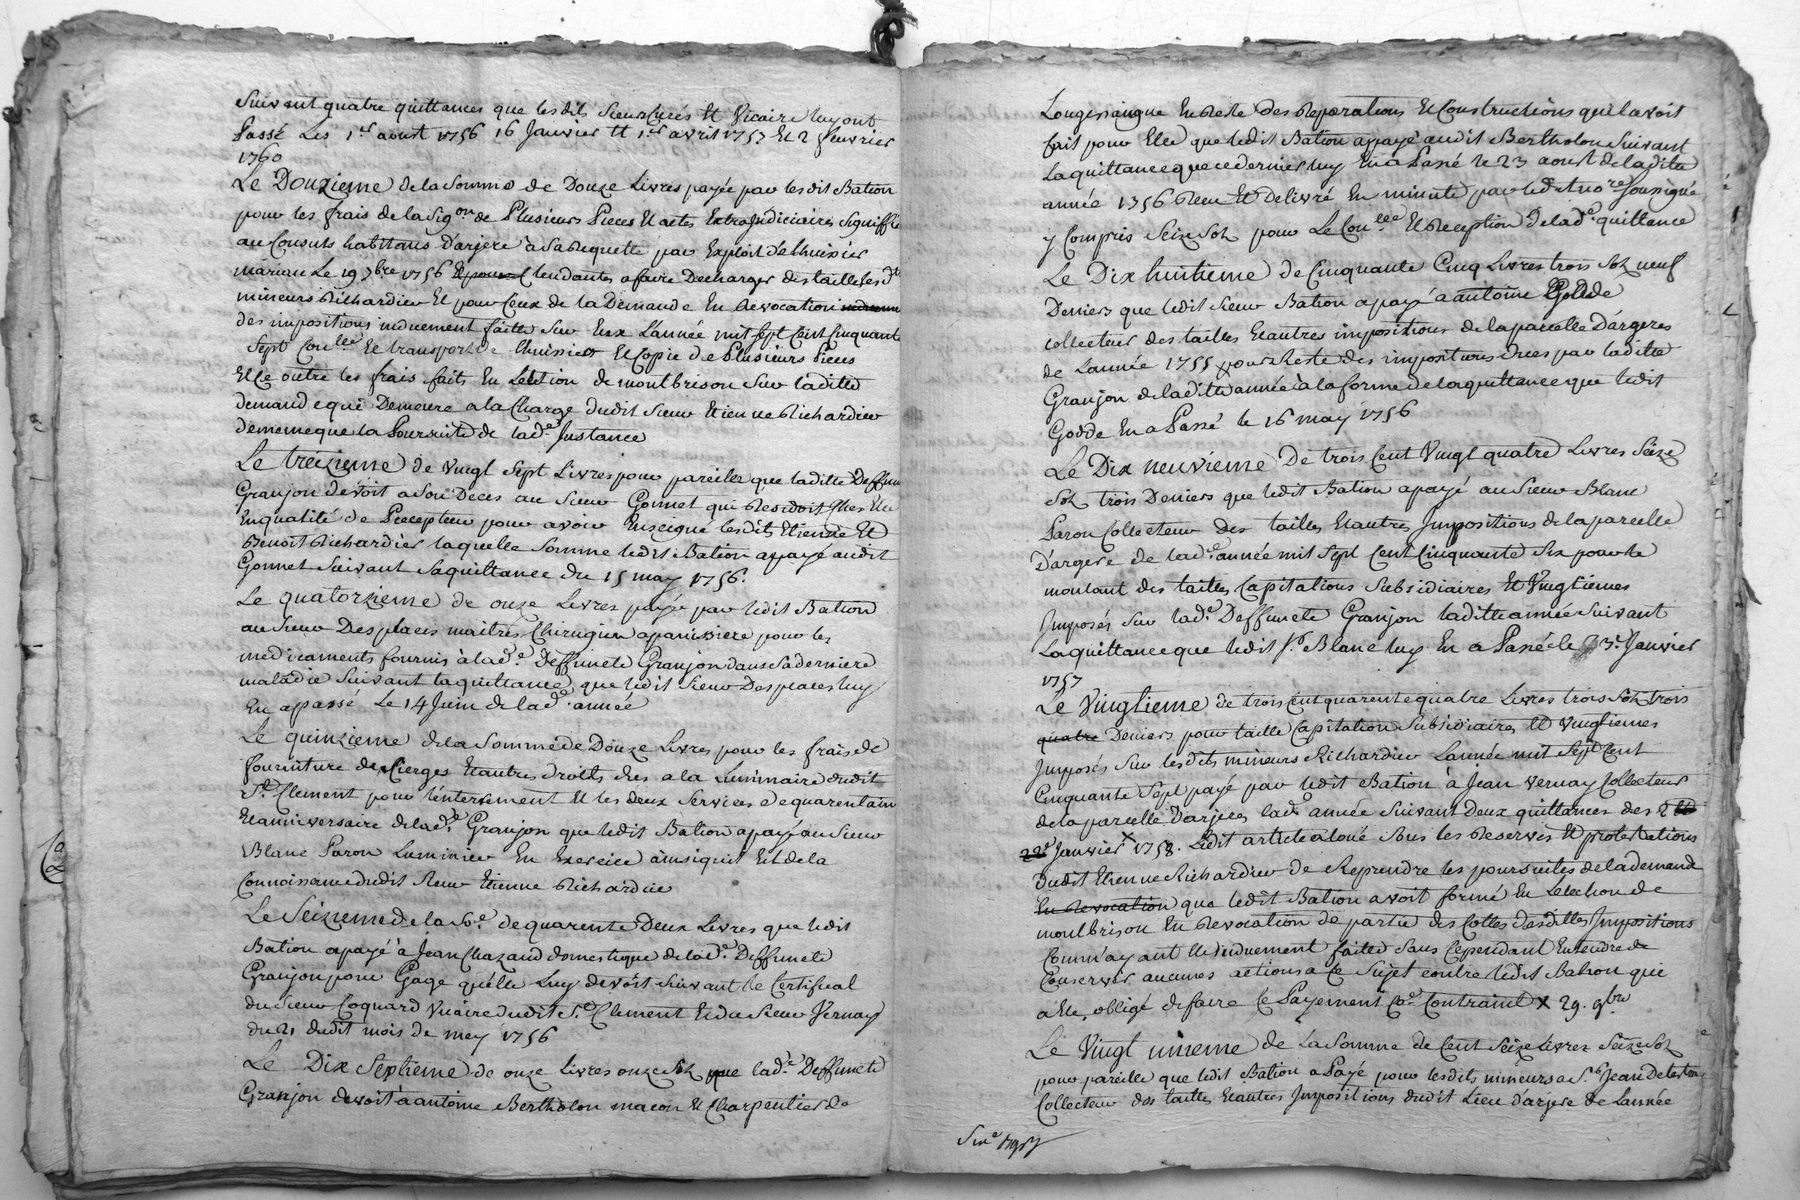 Suivant quatre quittances que lesdits Sieurs Curés Et Vicaire luy ont
Passé Les 1er aout 1756 16 Janvier Et 1er avril 1757 Et 2 feuvrier
1760
Le Douzieme de la Somme de Douze Livres payée par les dit Bation
pour les frais de la Sig.on de Plusieurs Pieces Et actes Extra Judiciaires Signiffié
au Consuls habitans D'arjere à Sa Requette par Exploit de l'huissier
mariau Le 19 7bre 1756 tendantes a faire Decharger des tailles lesdt
mineurs Richardier Et pour Ceux de la Demande En Revocation
des impositions induement faitte Sur Eux L'année mil Sept Cent Cinquante
Sept Con.lle Et transport de l'huissier Et Copie de Plusieurs Pieces
Et Ce outre les frais faits En L'election de montbrison Sur laditte
demande qui Demeure a la Charge dudit Sieur Etienne Richardier
de meme que la Poursuitte de lad.e Instance
Le treizieme de vingt Sept Livres pour pareilles que laditte Deffun
Granjon devoit a Son Deces au Sieur Gonnet qui Residoit Ches Elle
En qualité de Precepteur pour avoir Enseigné lesdits Etienne Et
Benoit Richardier laquelle Somme ledit Bation a payé audit
Gonnet Suivant Sa quittance du 15 may 1756.
Le quatorzieme de onze Livres payé par ledit Bation
au Sieur Desplaces maitre Chirugien a panissiere pour les
medicaments fournis à lad.e Deffuncte Granjon dans Sa derniere
maladie Suivant la quittance que ledit Sieur Desplaces luy
En a passé Le 14 Juin de lad.e année
Le quinzieme de la Somme de Douze Livres pour les frais de
fourniture de Cierges Et autres droits dus a la Luminaire dudit
St. Clement pour l'enterrement Et les deux Services de quarentain
Et anniversaire de lad.e Granjon que ledit Bation a payé au Sieur
Blanc Paron Luminier En Exercice ainsi qu'il Est de la
Connoissance dudit Sieur Etienne Richardier
Le Seizieme de la So.e de quarente Deux Livres que ledit
Bation a payé à Jean Chazaud domestique de lad.e Deffuncte
Granjon pour Gage quelle Luy devoit Suivant le Certifical
du Sieur Coquard Vicaire dudit St. Clement Et du Sieur Vernay
du 21 dudit mois de mey 1756
Le Dix Septieme de onze Livres onze Sols que lad.e Deffuncte
Granjon devoit à antoine Bertholon macon Et Charpentier de
Longessaigne En Reste des Reparations Et Constructions qu'il avoit
fait pour Elle que ledit Bation a payé audit Bertholon Suivant
La quittance que ce dernier luy En a Passé le 23 aoust de la ditte
année 1756 Recu Et Delivré En minute par ledit no.re Soussigné
y Compris Seize Sols pour Le Con.lle Et Reception de lad.e quittance
Le Dix huitieme de Cinquante Cinq Livres trois Sols neuf
Deniers que ledit Sieur Bation a payé a antoine Godde
collecteur des tailles Et autres impositions de la parcelle D'argeres
de L'année 1755 pour Reste des impositions dues par laditte
Granjon de laditte année à la forme de la quittance que ledit
Godde En a Passé le 16 may 1756
Le Dix neuvieme De trois Cent Vingt quatre Livres Seize
Sols trois Deniers que ledit Bation a payé au Sieur Blanc
Paron Collecteur des tailles Et autres Impositions de la parcelle
D'argere de lad.e année mil Sept Cent Cinquante Six pour le
montant des tailles Capitations Subsidiaires Et Vingtiemes
Imposés Sur lad.e Deffuncte Granjon laditte année Suivant
La quittance que ledit Sr. Blanc luy En a Passé le 3e. Janvier
1757
Le Vingtieme de trois Cent quarente quatre Livres trois Sols trois
quatre Deniers pour taille Capitation Subsidiaires Et Vingtiemes
Imposés Sur lesdits mineurs Richardier L'année mil Sept Cent
Cinquante Sept payé par ledit Bation à Jean Vernay Collecteur
de la parcelle D'arjeres lad.e année Suivant Deux quittances des 2
22e Janvier x 1758. Ledit article aloué Sous les Reserves Et protestations
Dudit Etienne Richardier de Reprendre les poursuites de la demande
En Revocation que ledit Bation avoit formé En L'election de
montbrison En Revocation de partie des Cottes desdittes Impositions
Comm'ayant Eté induement faites Sans Cependant Entendre
Conserver aucunes actions a Ce Sujet contre ledit Bation qui
a Eté obligé de faire Ce Payement Co.e Contraint x 29. 9bre
Le Vingt unieme de La Somme de Cent Seize Livres Seize Sols
pour pareille que ledit Bation a Payé pour lesdits mineurs a Sr. Jean
Collecteur des tailles Et autres Impositions dudit Lieu d'arjere de L'année